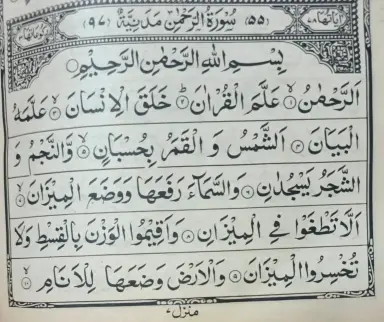 (۵۵) سُوْرَةُ الرَّحْمٰنِ مَدَنِيَّةٌ (۹۷)
بِسْمِ اللّٰهِ الرَّحْمٰنِ الرَّحِيْمِ
اَلرَّحْمٰنُ ۙ۱ عَلَّمَ الْقُرْاٰنَ ؕ۲ خَلَقَ الْاِنْسَانَ ۙ۳ عَلَّمَهُ
الْبَيَانَ ۴ اَلشَّمْسُ وَ الْقَمَرُ بِحُسْبَانٍ ۪۵ وَّالنَّجْمُ وَ
الشَّجَرُ يَسْجُدٰنِ ۶ وَالسَّمَآءَ رَفَعَهَا وَوَضَعَ الْمِيْزَانَ ۙ۷
اَلَّا تَطْغَوْا فِي الْمِيْزَانِ ۸ وَاَقِيْمُوا الْوَزْنَ بِالْقِسْطِ وَلَا
تُخْسِرُوا الْمِيْزَانَ ۹ وَالْاَرْضَ وَضَعَهَا لِلْاَنَامِ ۙ۱۰
منزل ۷